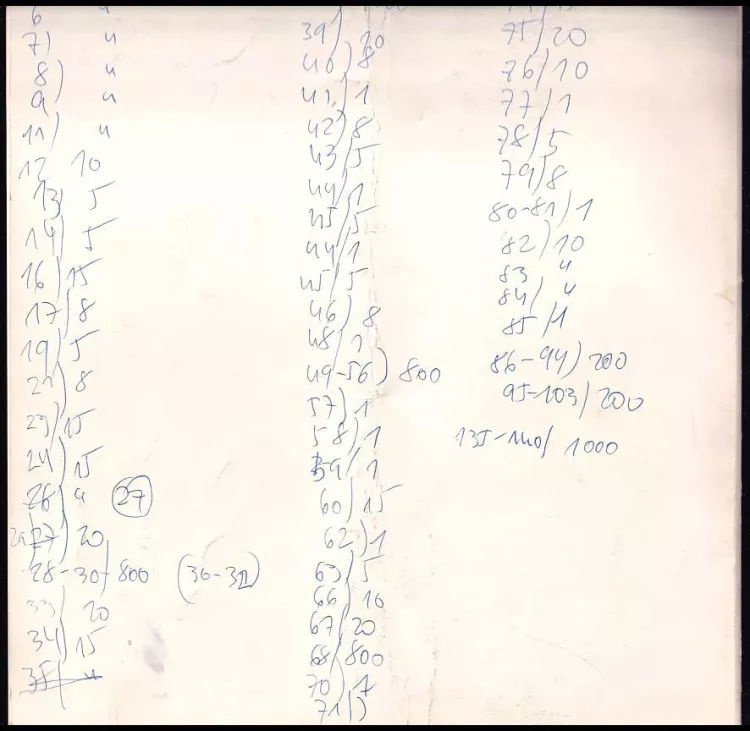 6 "
7) "
8) "
9) "
11) "
12 10
13) 5
14) 5
16) 15
17) 8
19) 5
8
23) 15
24) 15
26) " (27)
27) 20
28-30) 800 (30-32)
33) 20
34) 15
35) "
39) 20
40) 8
41) 1
42) 8
43) 5
44) 1
45) 5
44) 1
45) 5
46) 8
48) 1
49-56) 800
57) 1
58) 1
59) 1
60) 15
62) 1
63) 5
66) 10
67) 20
68) 800
70) 1
71)
75) 20
76) 10
77) 1
78) 5
79) 8
80-81) 1
82) 10
83 "
84) "
85) 1
86-94) 200
95-103) 200
135-140) 1000